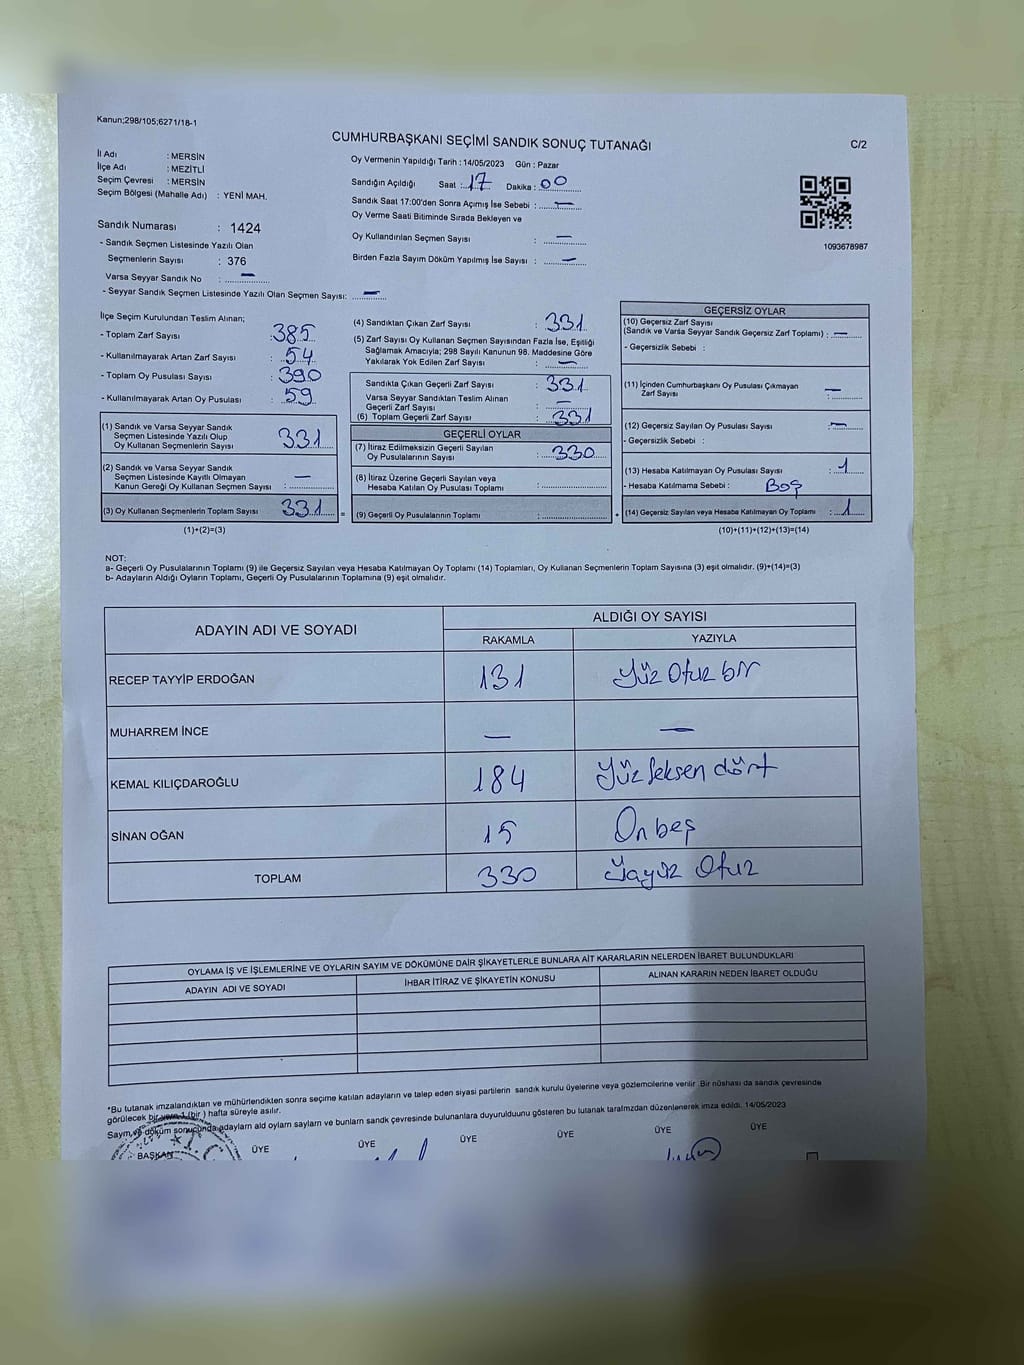 Kanun;298/105;6271/18-1
CUMHURBAŞKANI SEÇİMİ SANDIK SONUÇ TUTANAĞI
C/2
İl Adı : MERSİN
İlçe Adı : MEZİTLİ
Seçim Çevresi : MERSİN
Seçim Bölgesi (Mahalle Adı) : YENİ MAH.
Sandık Numarası : 1424
- Sandık Seçmen Listesinde Yazılı Olan
Seçmenlerin Sayısı : 376
Varsa Seyyar Sandık No : —
- Seyyar Sandık Seçmen Listesinde Yazılı Olan Seçmen Sayısı: —
Oy Vermenin Yapıldığı Tarih : 14/05/2023 Gün : Pazar
Sandığın Açıldığı Saat : 17 Dakika : 00
Sandık Saat 17:00'den Sonra Açımış İse Sebebi : —
Oy Verme Saati Bitiminde Sırada Bekleyen ve
Oy Kullandırılan Seçmen Sayısı : —
Birden Fazla Sayım Döküm Yapılmış İse Sayısı : —
1093678987
İlçe Seçim Kurulundan Teslim Alınan;
- Toplam Zarf Sayısı : 385
- Kullanılmayarak Artan Zarf Sayısı : 54
- Toplam Oy Pusulası Sayısı : 390
- Kullanılmayarak Artan Oy Pusulası : 59
(1) Sandık ve Varsa Seyyar Sandık
Seçmen Listesinde Yazılı Olup
Oy Kullanan Seçmenlerin Sayısı 331
(2) Sandık ve Varsa Seyyar Sandık
Seçmen Listesinde Kayıtlı Olmayan
Kanun Gereği Oy Kullanan Seçmen Sayısı : —
(3) Oy Kullanan Seçmenlerin Toplam Sayısı 331
(1)+(2)=(3)
=
(4) Sandıktan Çıkan Zarf Sayısı : 331
(5) Zarf Sayısı Oy Kullanan Seçmen Sayısından Fazla İse, Eşitliği
Sağlamak Amacıyla; 298 Sayılı Kanunun 98. Maddesine Göre
Yakılarak Yok Edilen Zarf Sayısı : —
Sandıkta Çıkan Geçerli Zarf Sayısı : 331
Varsa Seyyar Sandıktan Teslim Alınan
Geçerli Zarf Sayısı : —
(6) Toplam Geçerli Zarf Sayısı : 331
GEÇERLİ OYLAR
(7) İtiraz Edilmeksizin Geçerli Sayılan
Oy Pusulalarının Sayısı : 330
(8) İtiraz Üzerine Geçerli Sayılan veya
Hesaba Katılan Oy Pusulası Toplamı :
(9) Geçerli Oy Pusulalarının Toplamı :
+
GEÇERSİZ OYLAR
(10) Geçersiz Zarf Sayısı
(Sandık ve Varsa Seyyar Sandık Geçersiz Zarf Toplamı) : —
- Geçersizlik Sebebi :
(11) İçinden Cumhurbaşkanı Oy Pusulası Çıkmayan
Zarf Sayısı : —
(12) Geçersiz Sayılan Oy Pusulası Sayısı : —
- Geçersizlik Sebebi :
(13) Hesaba Katılmayan Oy Pusulası Sayısı : 1
- Hesaba Katılmama Sebebi : Boş
(14) Geçersiz Sayılan veya Hesaba Katılmayan Oy Toplamı : 1
(10)+(11)+(12)+(13)=(14)
NOT:
a- Geçerli Oy Pusulalarının Toplamı (9) ile Geçersiz Sayılan veya Hesaba Katılmayan Oy Toplamı (14) Toplamları, Oy Kullanan Seçmenlerin Toplam Sayısına (3) eşit olmalıdır. (9)+(14)=(3)
b- Adayların Aldığı Oyların Toplamı, Geçerli Oy Pusulalarının Toplamına (9) eşit olmalıdır.
ADAYIN ADI VE SOYADI
ALDIĞI OY SAYISI
RAKAMLA YAZIYLA
RECEP TAYYİP ERDOĞAN 131 Yüz Otuz bir
MUHARREM İNCE — —
KEMAL KILIÇDAROĞLU 184 Yüz seksen dört
SİNAN OĞAN 15 On beş
TOPLAM 330 Üçyüz Otuz
OYLAMA İŞ VE İŞLEMLERİNE VE OYLARIN SAYIM VE DÖKÜMÜNE DAİR ŞİKAYETLERLE BUNLARA AİT KARARLARIN NELERDEN İBARET BULUNDUKLARI
ADAYIN ADI VE SOYADI İHBAR İTİRAZ VE ŞİKAYETİN KONUSU ALINAN KARARIN NEDEN İBARET OLDUĞU
*Bu tutanak imzalandıktan ve mühürlendikten sonra seçime katılan adayların ve talep eden siyasi partilerin sandık kurulu üyelerine veya gözlemcilerine verilir .Bir nüshası da sandık çevresinde
görülecek bir yere 1 (bir ) hafta süreyle asılır.
Sayım ve döküm sonucunda adayların aldı oyların sayları ve bunların sandk çevresinde bulunanlara duyurulduunu gösteren bu tutanak tarafmzdan düzenlenerek imza edildi. 14/05/2023
BAŞKAN ÜYE ÜYE ÜYE ÜYE ÜYE ÜYE
T.C.